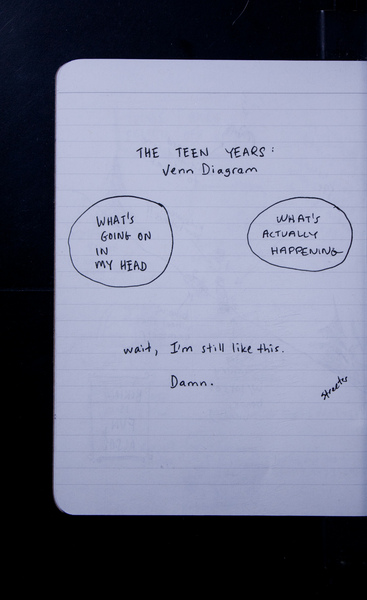 THE TEEN YEARS:
Venn Diagram
WHAT'S
GOING ON
IN
MY HEAD
WHAT'S
ACTUALLY
HAPPENING
wait, I'm still like this.
Damn.
Streeter